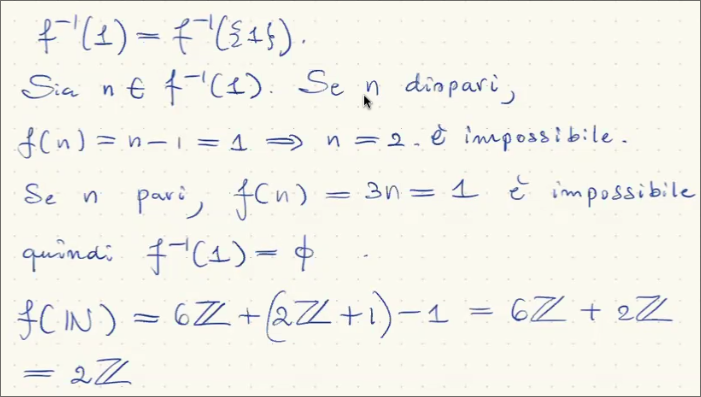 f⁻¹(1) = f⁻¹({1}).
Sia n ∈ f⁻¹(1). Se n dispari,
f(n) = n - 1 = 1 ⟹ n = 2. è impossibile.
Se n pari, f(n) = 3n = 1 è impossibile
quindi f⁻¹(1) = ϕ .
f(ℕ) = 6ℤ + (2ℤ + 1) - 1 = 6ℤ + 2ℤ
= 2ℤ